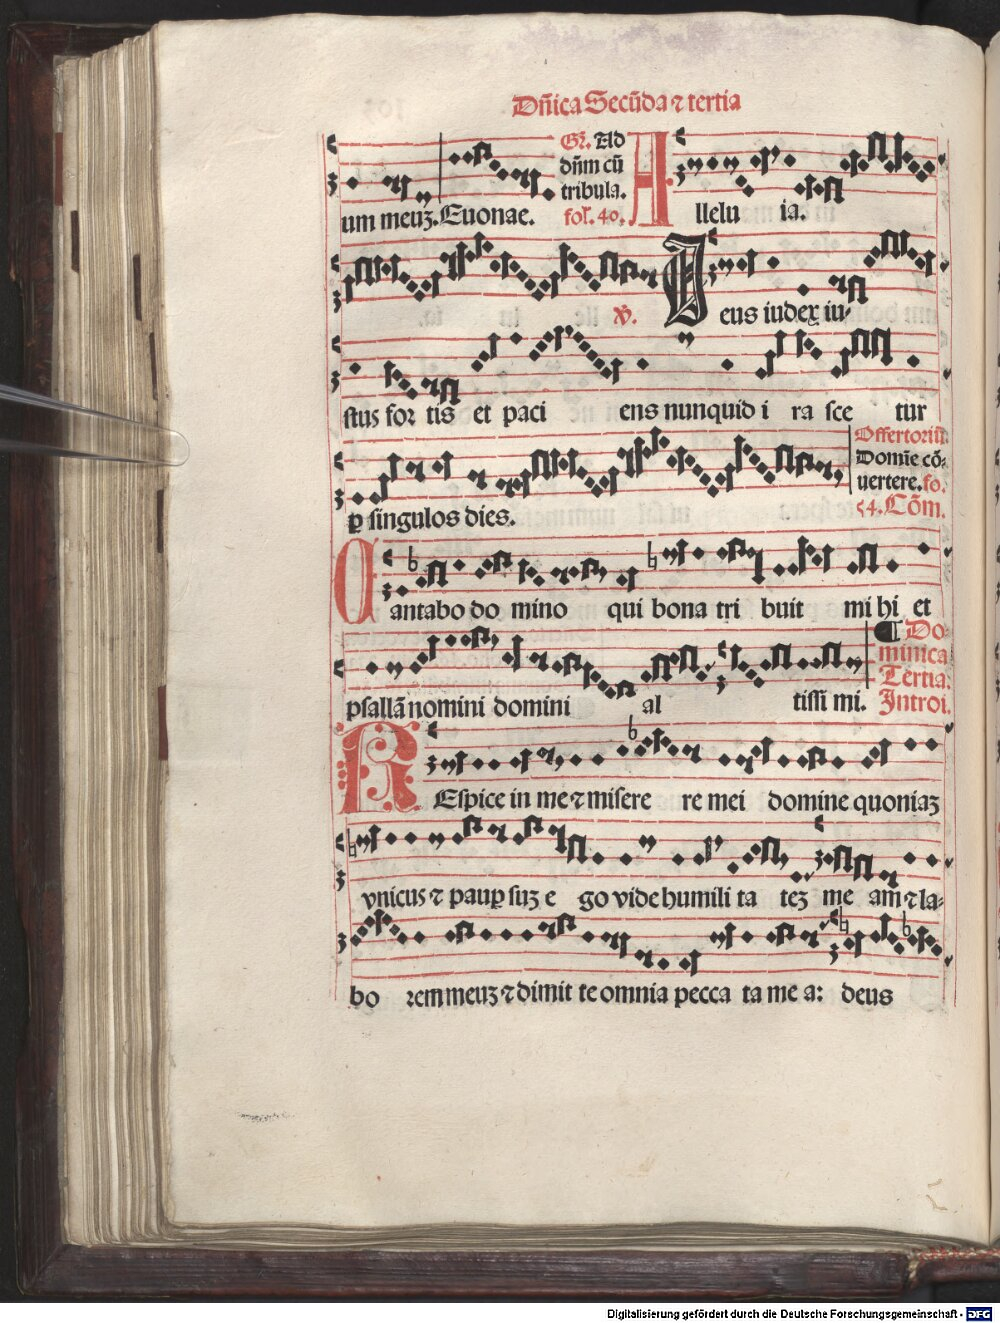 Dñica Secũda ⁊ tertia
um meuʒ. Euonae.
Gř. Ad
dñm cũ
tribula.
fol. 40.
A llelu ia.
℣. Deus iudex iu-
stus for tis et paci ens nunquid i ra sce tur
ꝑ singulos dies.
Offertoriũ.
Domie cõ-
uertere. fo.
54. Cõm.
Cantabo do mino qui bona tri buit mi hi et
psallã nomini domini al tissi mi.
¶ Do-
minica
Tertia.
Introi.
REspice in me ⁊ misere re mei domine quoniaʒ
vnicus ⁊ paupꝑ suʒ e go vide humili ta teʒ me am ⁊ la-
bo rem meuʒ ⁊ dimit te omnia pecca ta me a: deus
Digitalisierung gefördert durch die Deutsche Forschungsgemeinschaft - DFG